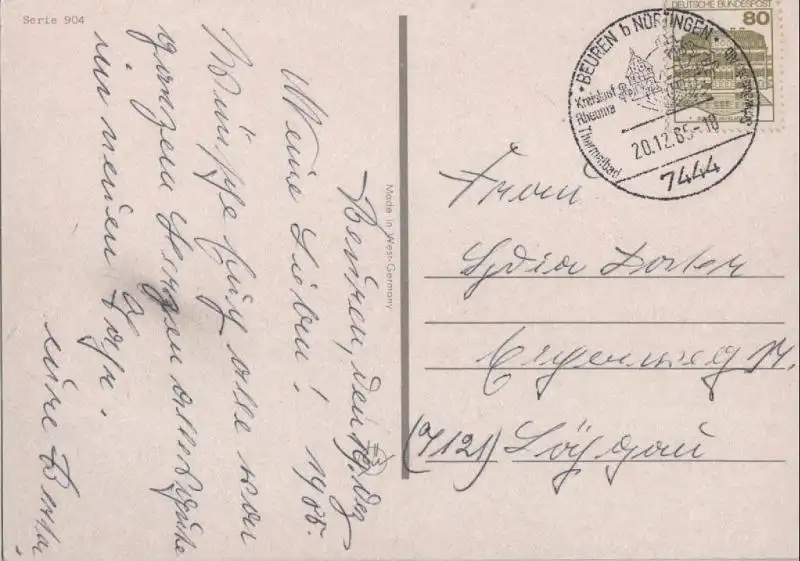 Serie 904
Beuren, den 19. Dez
1985.
Meine Lieben!
Wünsche Euch alle von
ganzem Herzen alles Gute
im neuen Jahr.
Eure Berta
Made in West-Germany
DEUTSCHE BUNDESPOST
80
BEUREN b NÜRTINGEN
Kreislauf
Rheuma
Thermalbad
20.12.85-18
7444
Frau
Lydia
(7121) Löchgau